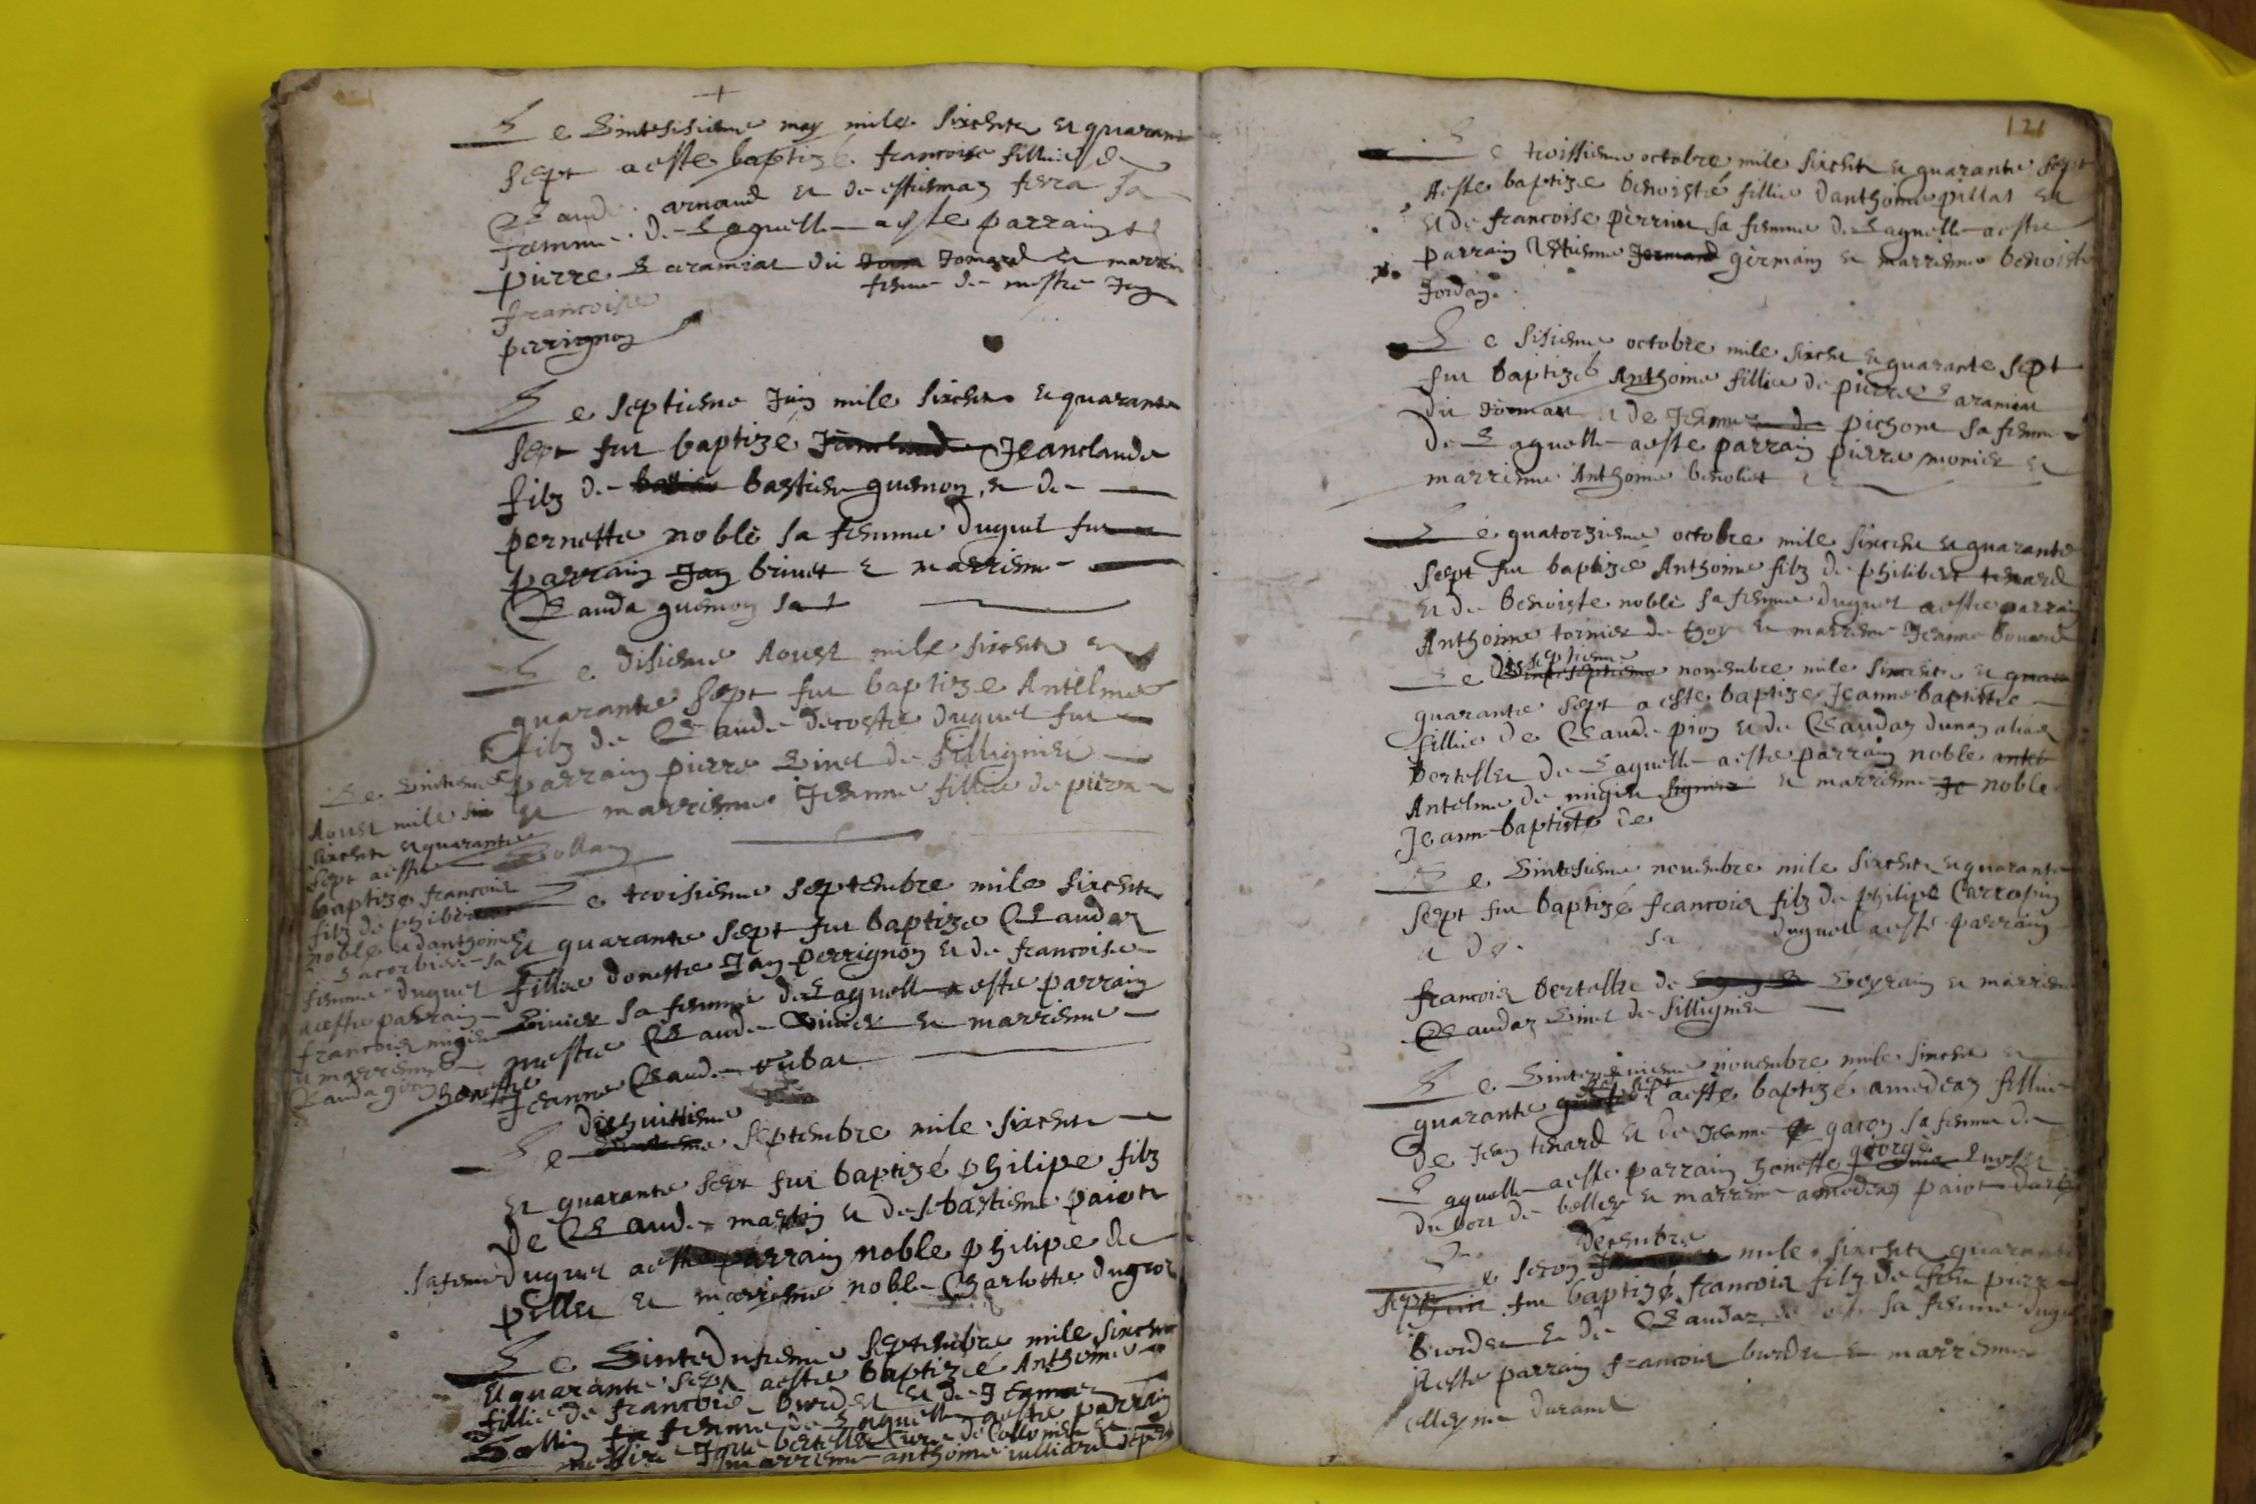 Le vintesisiesme may mile sixcentz et quarante
sept a este baptizé francoise fillie de
Claude arnaud et de estiesmaz ferra sa
femme de laquelle a este parrain
pierre Caramiat dit Jomard et marrine
francoise femme de mestre Jan
perrignon
Le septiesme Juin mile sixcentz et quarante
sept fut baptizé Jeanclaude
filz de bastien guenon et de
pernette noble sa femme duquel fut
parrain Jan brinet et marriesme
Clauda guenon
Le disiesme Aoust mile sixcentz et
quarante sept fut baptize Antelme
filz de Claude decoste duquel fut
parrain pierre Sinet de Sillignieu
et marriesme Jeanne fillie de pierre
Le vintiesme
Aoust mile
sixcentz et quarante
sept a este
baptize francois
filz de philibert
noble et danthoine
Lacorbiere sa
femme duquel
a este parrain
francois migieu
et marriesme
Clauda
Le troisiesme septembre mile sixcentz
et quarante sept fut baptize Claudaz
fillie donette Jan perrignon et de francoise
Sivier sa femme de Laquelle a este parrain
mestre Claude Sivier et marriesme
honeste Jeanne Claude rubat
dixhuittiesme
Le septembre mile sixcentz
et quarante sept fut baptizé philipe filz
de Claude martin et de sebastienne paiot
sa femme duquel a este parrain noble philipe de
pillet et marriesme noble Charlotte
Le vintedusieme septembre mile sixcentz
et quarante sept a este baptizé Anthoine
fillie de francois burdet et de Jeanne
Sollin sa femme de Laquelle a este parrain
messire bertellet curé de Collomieu et
marriesme anthoine vulliard
121
Le troissiesme octobre mile sixcentz et quarante sept
A este baptize benoiste fillie danthoine pillat et
et de francoise perrine sa femme de Laquelle a este
parrain Estienne germain et marriesme benoiste
Jordan
Le sisiesme octobre mile sixcentz et quarante sept
fut baptizé Anthoine fillie de pierre Caramiat
dit Jomard et de Jeanne pichone sa femme
de Laquelle a este parrain pierre monier et
marriesme Anthoine benoliet
Le quatorziesme octobre mile sixcentz et quarante
sept fut baptizé Anthoine filz de philibert tenard
et de benoiste noble sa femme duquel a este parrain
Anthoine tornier de et marriesme Jeanne
dixseptiesme
Le novembre mile sixcentz et
quarante sept a este baptize Jeanne baptiste
fillie de Claude pion et de Claudaz dunan alias
bertellet de Laquelle a este parrain noble
Antelme de migieu et marriesme noble
Jeanne baptiste de
Le vintesieme novembre mile sixcentz et quarante
sept fut baptizé francois filz de philipe Carropin
et de sa duquel a este parrain
francois bertellet de Leyrain et marriesme
Claudaz Sinet de Sillignieu
Le novembre mile sixcentz et
quarante sept a este baptizé amedeaz fillie
de Jean tenard et de Jeanne garon sa femme de
Laquelle a este parrain honeste george
du bou de belley et marriesme amedeaz paiot
decembre
Le segon mile sixcentz quarante
sept fut baptizé francois filz de feu pierre
burdet et de Claudaz sa femme duquel
A este parrain francois burdet et marriesme
durand